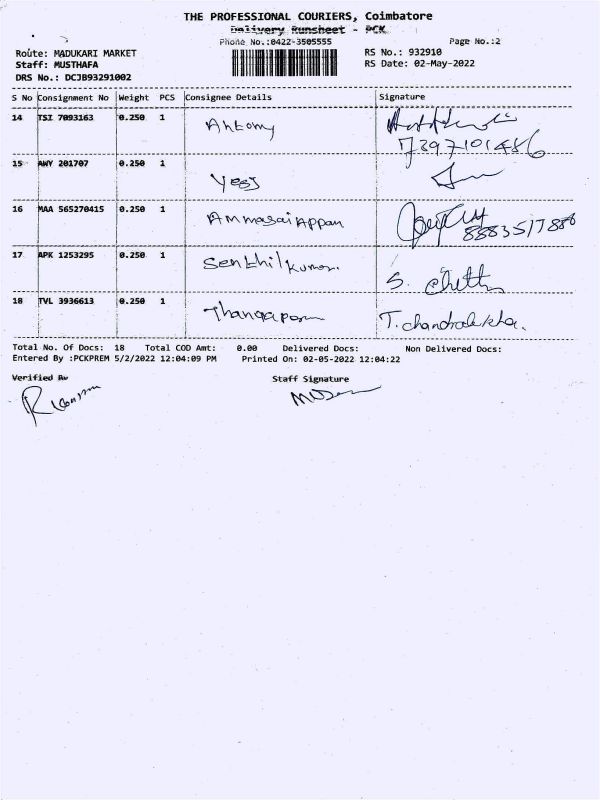 THE PROFESSIONAL COURIERS, Coimbatore
Delivery Runsheet - PCK
Phone No.:0422-3505555 Page No.:2
Route: MADUKARI MARKET RS No.: 932910
Staff: MUSTHAFA RS Date: 02-May-2022
DRS No.: DCJB93291002
S No Consignment No Weight PCS Consignee Details Signature
14 TSI 7093163 0.250 1 Antony
7397101486
15 AWY 201707 0.250 1
16 MAA 565270415 0.250 1 Ammasai Appan
8883517886
17 APK 1253295 0.250 1 Senthil kumar. S.
18 TVL 3936613 0.250 1 Thangapam T. chandralekha.
Total No. Of Docs: 18 Total COD Amt: 0.00 Delivered Docs: Non Delivered Docs:
Entered By :PCKPREM 5/2/2022 12:04:09 PM Printed On: 02-05-2022 12:04:22
Verified By Staff Signature